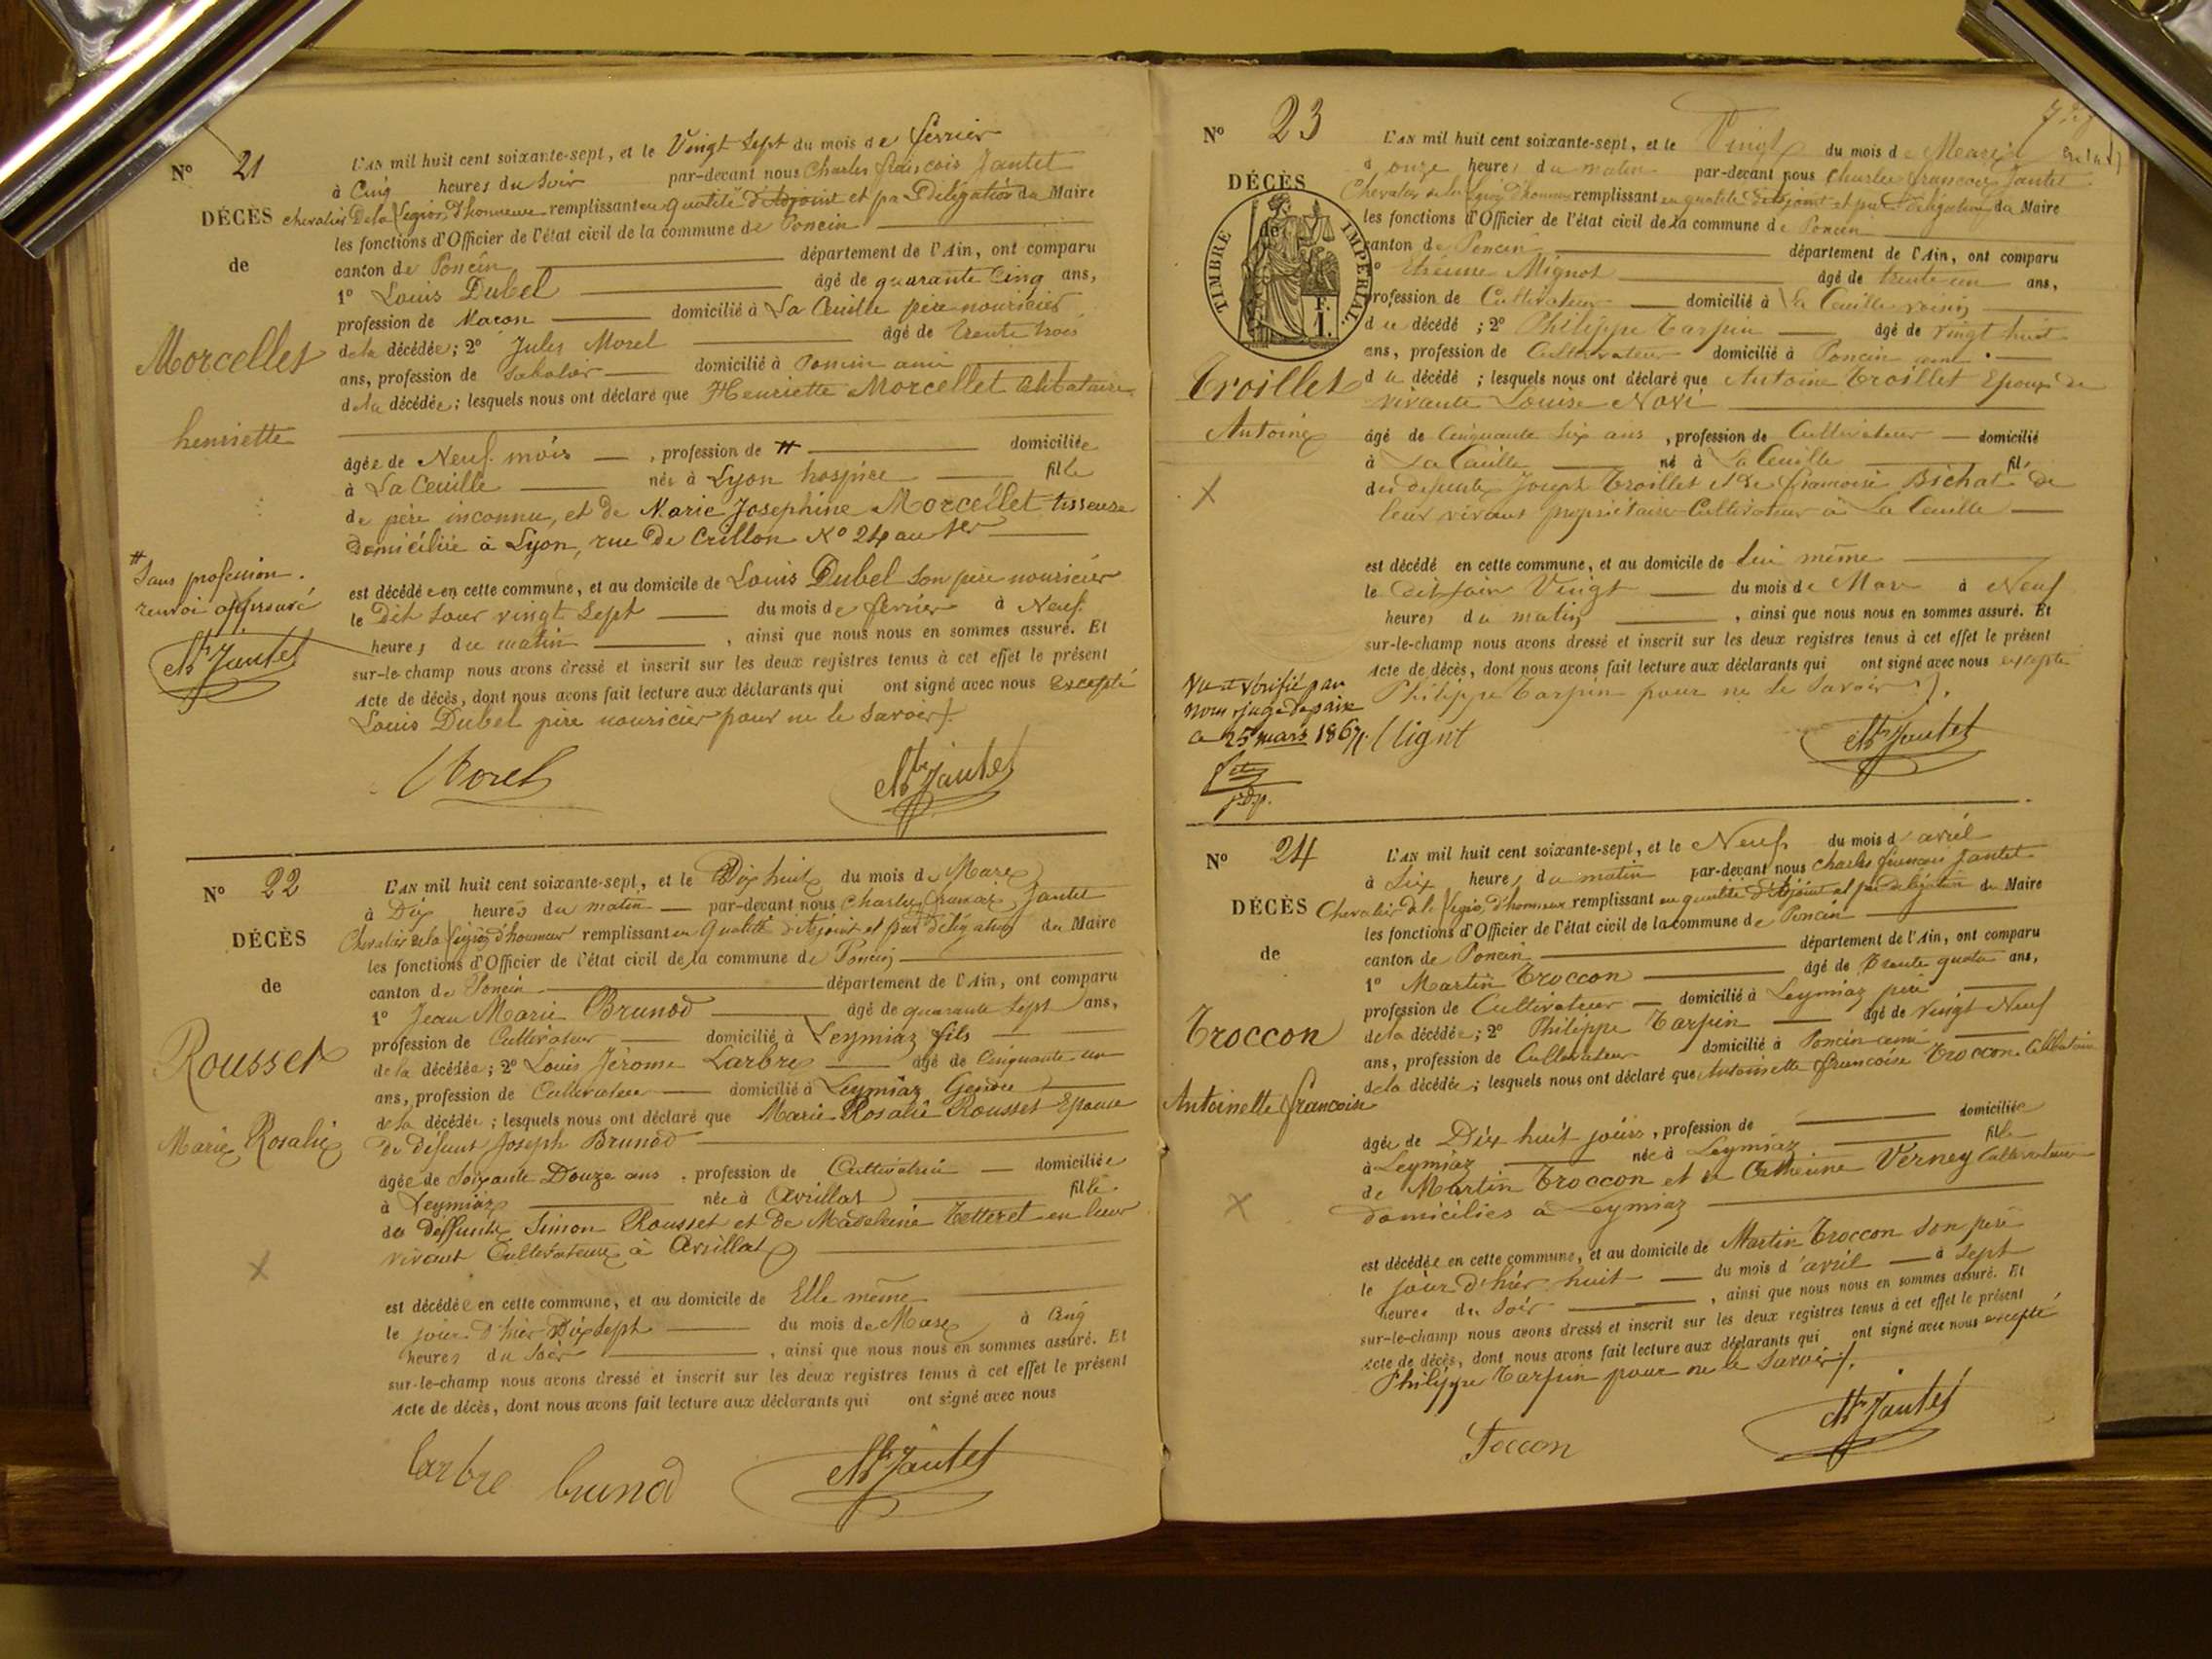 N° 21
DÉCÈS
de
Morcellet
henriette
L'AN mil huit cent soixante-sept, et le Vingt Sept du mois de février
à Cinq heures du Soir par-devant nous Charles françois Jantet
chevalier De la Légion D'honneur remplissant en qualité d'Adjoint et par Délégation du Maire
les fonctions d'Officier de l'état civil de la commune de Poncin
canton de Poncin département de l'Ain, ont comparu
1° Louis Dubel âgé de quarante Cinq ans,
profession de Macon domicilié à La Cueille père nouricier
de la décédée; 2° Jules Morel âgé de trente trois
ans, profession de Sabotier domicilié à Poncin ami
de la décédée; lesquels nous ont déclaré que Henriette Morcellet Célibataire
âgée de Neuf mois, profession de # domiciliée
à La Cueille née à Lyon hospice fille
de père inconnu, et de Marie Josephine Morcellet tisseuse
Domiciliée à Lyon, rue De Crillon N° 24 au 1er
#
Sans profession.
renvoi approuvé
Ch Jantet
est décédée en cette commune, et au domicile de Louis Dubel son père nouricier
le Dit Jour vingt Sept du mois de février à Neuf
heures du matin, ainsi que nous nous en sommes assuré. Et
sur-le-champ nous avons dressé et inscrit sur les deux registres tenus à cet effet le présent
Acte de décès, dont nous avons fait lecture aux déclarants qui ont signé avec nous Excepté
Louis Dubel père nouricier pour ne le Savoir
Morel
Ch Jantet
N° 22
DÉCÈS
de
Rousset
Marie Rosalie
L'AN mil huit cent soixante-sept, et le Dix huit du mois de Mars
à Dix heures du matin par-devant nous Charles françois Jantet
Chevalier de la Légion d'honneur remplissant en Qualité d'Adjoint et par délégation du Maire
les fonctions d'Officier de l'état civil de la commune de Poncin
canton de Poncin département de l'Ain, ont comparu
1° Jean Marie Brunod âgé de quarante Sept ans,
profession de Cultivateur domicilié à Leymiaz fils
de la décédée; 2° Louis Jérome Larbre âgé de Cinquante un
ans, profession de Cultivateur domicilié à Leymiaz Gendre
de la décédée; lesquels nous ont déclaré que Marie Rosalie Rousset Epouse
De défunt Joseph Brunod
âgée de Soixante Douze ans, profession de Cultivatrice domiciliée
à Leymiaz née à Arrillat fille
des deffunts Simon Rousset et de Madeleine Tetteret en leur
vivant Cultivateurs à Arrillat
est décédée en cette commune, et au domicile de Elle même
le jour d'hier Dix Sept du mois de Mars à Cinq
heures du Soir, ainsi que nous nous en sommes assuré. Et
sur-le-champ nous avons dressé et inscrit sur les deux registres tenus à cet effet le présent
Acte de décès, dont nous avons fait lecture aux déclarants qui ont signé avec nous
larbre brunod Ch Jantet
N° 23
DÉCÈS
de
TIMBRE IMPÉRIAL
F.
1.
Troillet
Antoine
L'AN mil huit cent soixante-sept, et le Vingt du mois de Mars
à onze heures du matin par-devant nous Charles françois Jantet
Chevalier de la Légion d'honneur remplissant en qualité d'Adjoint et par délégation du Maire
les fonctions d'Officier de l'état civil de la commune de Poncin
canton de Poncin département de l'Ain, ont comparu
1° Etienne Mignot âgé de trente un ans,
profession de Cultivateur domicilié à La Cueille voisin
du décédé; 2° Philippe Tarpin âgé de vingt huit
ans, profession de Cultivateur domicilié à Poncin ami
du décédé; lesquels nous ont déclaré que Antoine Troillet Epoux de
vivante Louise Navi
âgé de Cinquante Six ans, profession de Cultivateur domicilié
à La Cueille né à La Cueille fils
des defunts Joseph Troillet et de francoise Bichat de
leur vivant propriétaires Cultivateurs à La Cueille
est décédé en cette commune, et au domicile de Lui même
le dit jour Vingt du mois de Mars à Neuf
heures du matin, ainsi que nous nous en sommes assuré. Et
sur-le-champ nous avons dressé et inscrit sur les deux registres tenus à cet effet le présent
Acte de décès, dont nous avons fait lecture aux déclarants qui ont signé avec nous excepté
Philippe Tarpin pour ne le Savoir
Vu et vérifié par
nous juge de paix
ce 25 mars 1867
Mignt
Ch Jantet
N° 24
DÉCÈS
de
Troccon
Antoinette francoise
L'AN mil huit cent soixante-sept, et le Neuf du mois d'avril
à Six heures du matin par-devant nous Charles francois Jantet
Chevalier de la Légion d'honneur remplissant en qualité d'Adjoint et par délégation du Maire
les fonctions d'Officier de l'état civil de la commune de Poncin
canton de Poncin département de l'Ain, ont comparu
1° Martin Troccon âgé de Trente quatre ans,
profession de Cultivateur domicilié à Leymiaz père
de la décédée; 2° Philippe Tarpin âgé de Vingt Neuf
ans, profession de Cultivateur domicilié à Poncin ami
de la décédée; lesquels nous ont déclaré que Antoinette francoise Troccon Célibataire
âgée de Dix huit jours, profession de domiciliée
à Leymiaz née à Leymiaz fille
de Martin Troccon et de Catherine Verney Cultivateurs
domicilies à Leymiaz
est décédée en cette commune, et au domicile de Martin Troccon Son père
le jour d'hier huit du mois d'avril à Sept
heures du Soir, ainsi que nous nous en sommes assuré. Et
sur-le-champ nous avons dressé et inscrit sur les deux registres tenus à cet effet le présent
Acte de décès, dont nous avons fait lecture aux déclarants qui ont signé avec nous excepté
Philippe Tarpin pour ne le Savoir
Toccon
Ch Jantet